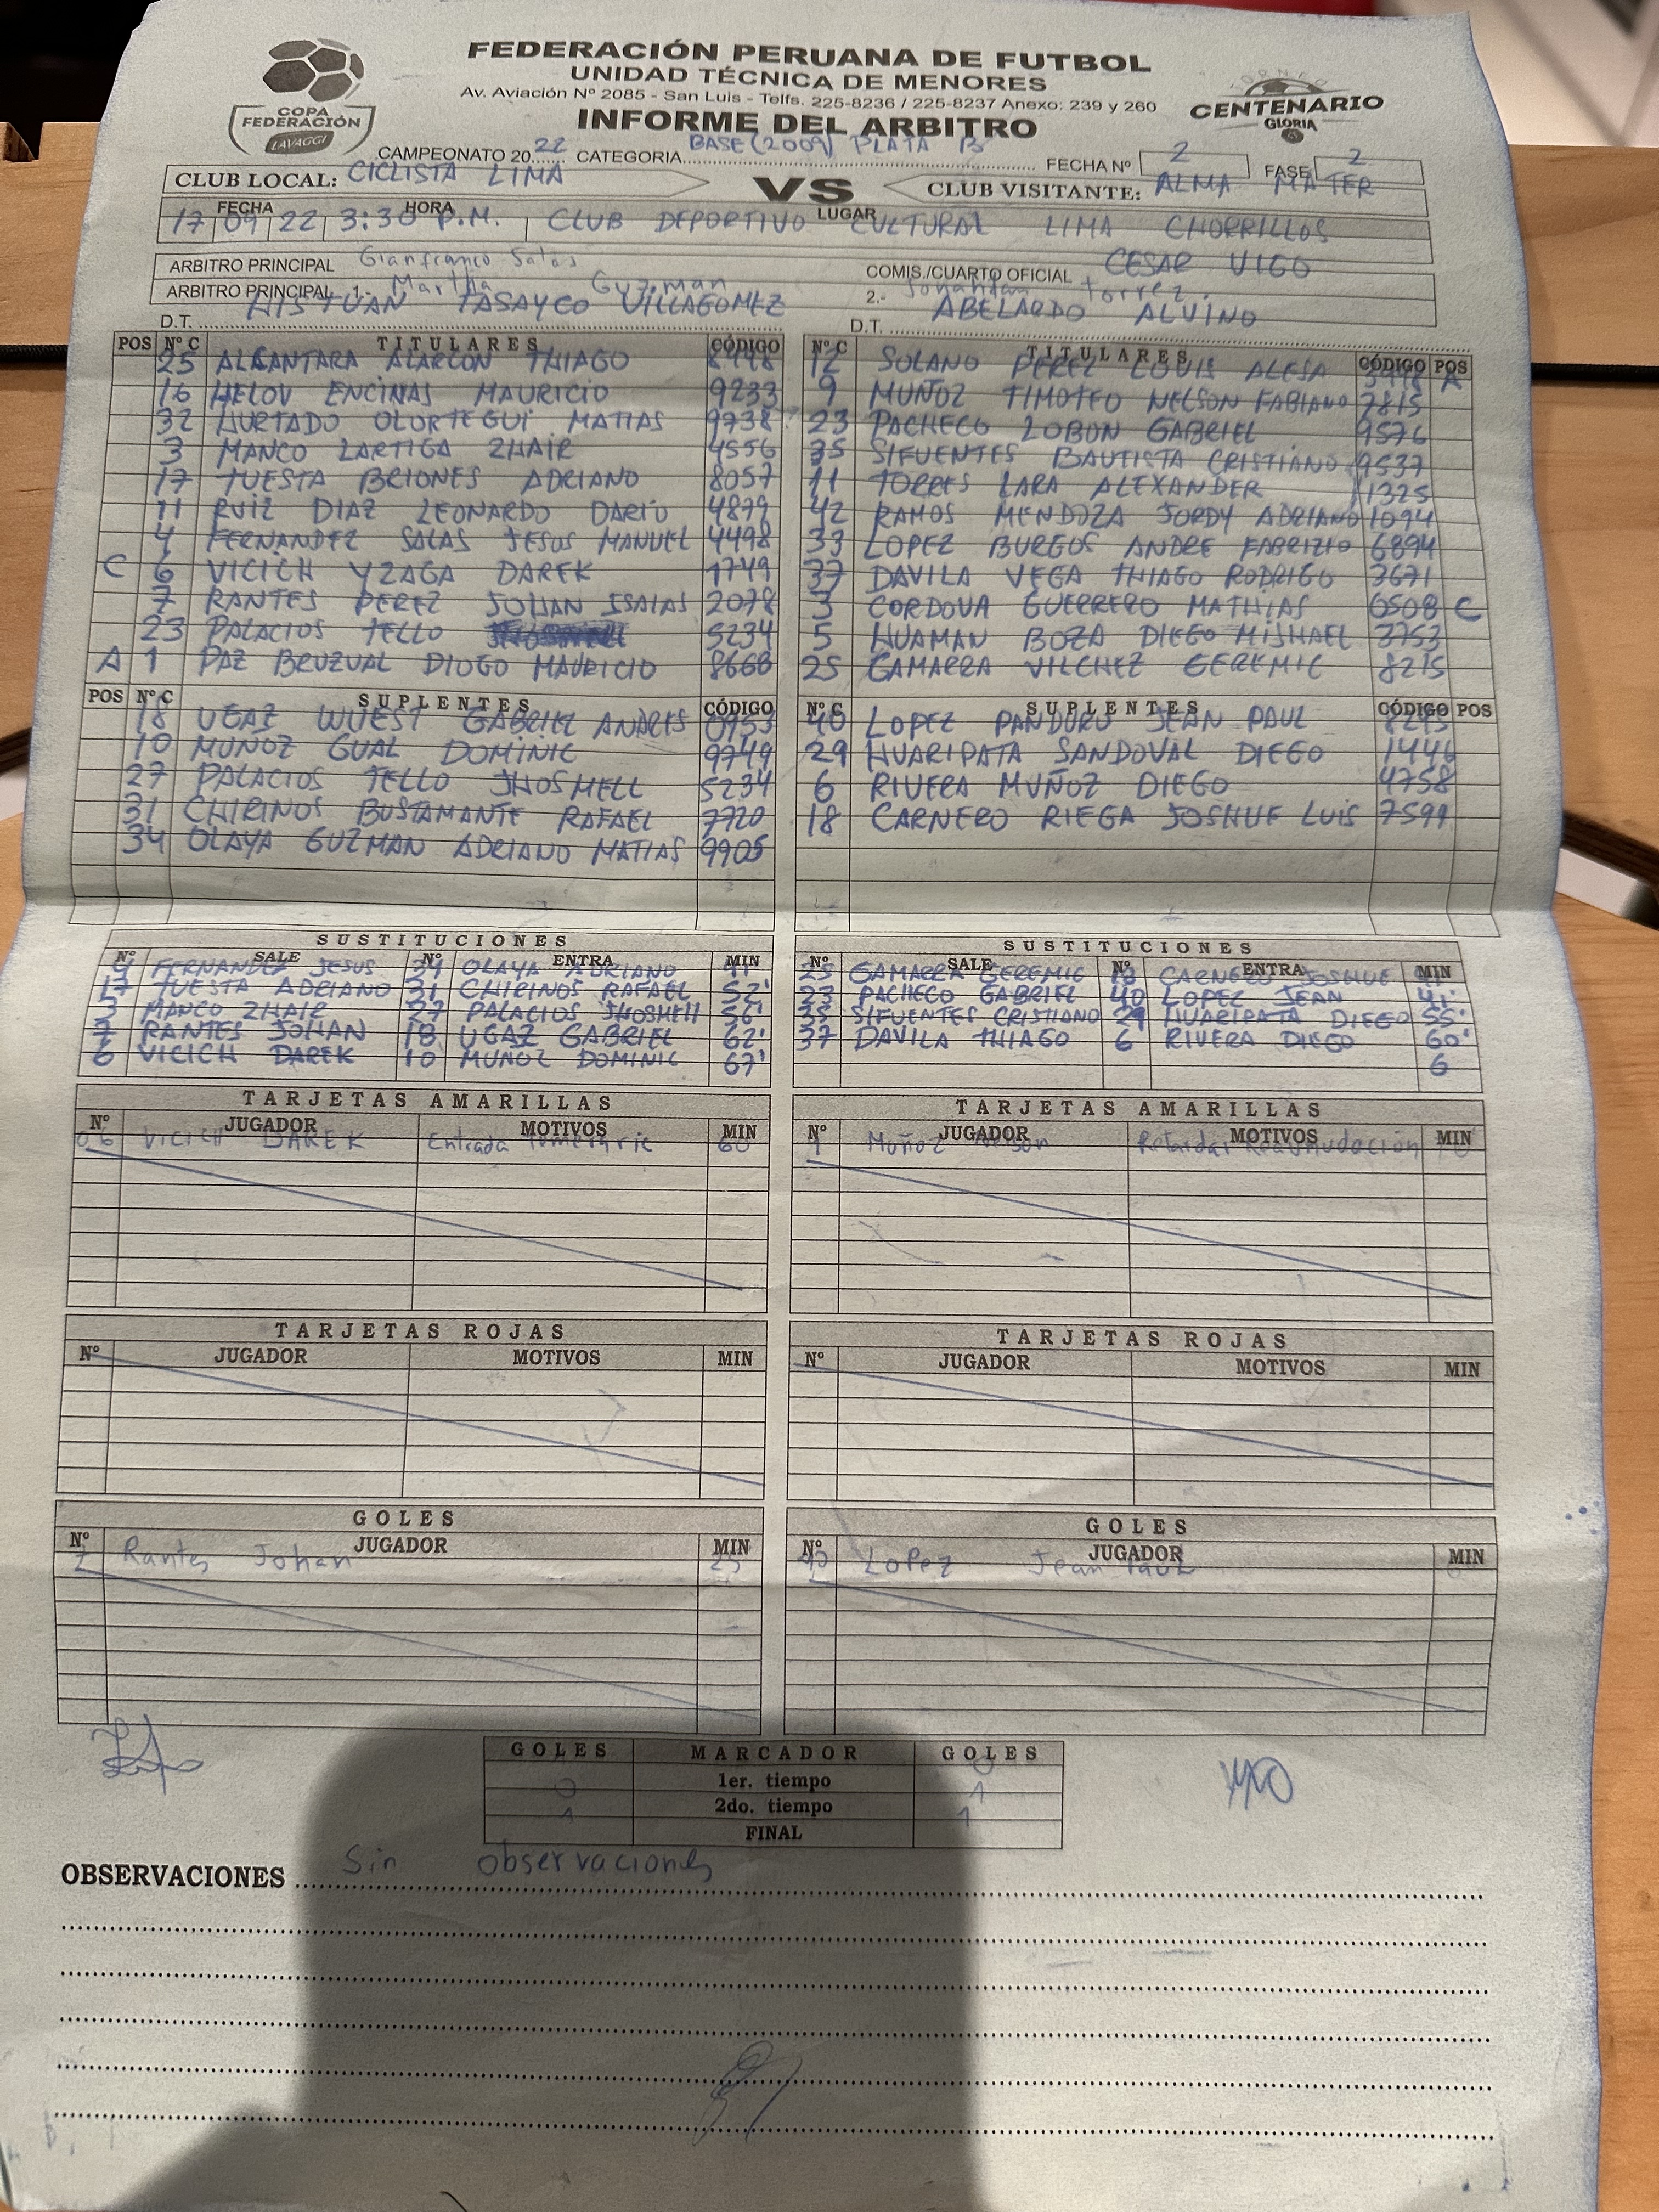 COPA
FEDERACIÓN
LAVAGGI
FEDERACIÓN PERUANA DE FUTBOL
UNIDAD TÉCNICA DE MENORES
Av. Aviación Nº 2085 - San Luis - Telfs. 225-8236 / 225-8237 Anexo: 239 y 260
INFORME DEL ARBITRO
TORNEO
CENTENARIO
GLORIA
CAMPEONATO 2022 CATEGORIA BASE (2009) PLATA B FECHA Nº 2 FASE 2
CLUB LOCAL: CICLISTA LIMA VS CLUB VISITANTE: ALMA MATER
FECHA HORA LUGAR
17 09 22 3:30 P.M. CLUB DEPORTIVO CULTURAL LIMA CHORRILLOS
ARBITRO PRINCIPAL Gianfranco Salas COMIS./CUARTO OFICIAL CESAR VIGO
ARBITRO PRINCIPAL 1.- Martha Guzman 2.- Jonathan Torrez.
D.T. TASAYCO VILLAGOMEZ D.T. ABELARDO ALVINO
POS Nº C TITULARES CÓDIGO Nº C TITULARES CÓDIGO POS
25 ALCANTARA ALARCON THIAGO 8498 12 SOLANO PEREZ LOUIS ALESA A
16 HELOV ENCINAS MAURICIO 9233 9 MUÑOZ TIMOTEO NELSON FABIANO 7815
32 HURTADO OLORTEGUI MATIAS 9738 23 PACHECO LOBON GABRIEL 9576
3 MANCO LARTIGA ZHAIR 4556 35 SIFUENTES BAUTISTA CRISTIANO 9537
17 TUESTA BRIONES ADRIANO 8057 11 TORRES LARA ALEXANDER 1325
11 RUIZ DIAZ LEONARDO DARIO 4879 42 RAMOS MENDOZA JORDY ADRIANO 1094
4 FERNANDEZ SALAS JESUS MANUEL 4498 33 LOPEZ BURGOS ANDRE FABRIZIO 6894
C 6 VICICH YZAGA DAREK 1749 37 DAVILA VEGA THIAGO RODRIGO 3671
7 RANTES PEREZ JOHAN ISAIAS 2078 3 CORDOVA GUERRERO MATHIAS 6508 C
23 PALACIOS TELLO 5234 5 HUAMAN BOZA DIEGO MISHAEL 3753
A 1 PAZ BRUZUAL DIOGO MAURICIO 8668 25 GAMARRA VILCHEZ GEREMIC 8215
POS Nº C SUPLENTES CÓDIGO Nº C SUPLENTES CÓDIGO POS
18 UGAZ WUEST GABRIEL ANDRES 0953 40 LOPEZ PANDURO JEAN PAUL
10 MUÑOZ GUAL DOMINIC 9749 29 HUARIPATA SANDOVAL DIEGO 1446
27 PALACIOS TELLO JHOSMELL 5234 6 RIVERA MUÑOZ DIEGO 4758
31 CHIRINOS BUSTAMANTE RAFAEL 7720 18 CARNERO RIEGA JOSHUE LUIS 7599
34 OLAYA GUZMAN ADRIANO MATIAS 9905
SUSTITUCIONES SUSTITUCIONES
Nº SALE Nº ENTRA MIN Nº SALE Nº ENTRA MIN
4 FERNANDEZ JESUS 34 OLAYA ADRIANO 41' 25 GAMARRA GEREMIC 18 CARNERO JOSHUE 41'
17 TUESTA ADRIANO 31 CHIRINOS RAFAEL 52' 23 PACHECO GABRIEL 40 LOPEZ JEAN 41'
3 MANCO ZHAIR 27 PALACIOS JHOSMELL 56' 35 SIFUENTES CRISTIANO 29 HUARIPATA DIEGO 55'
7 RANTES JOHAN 18 UGAZ GABRIEL 62' 37 DAVILA THIAGO 6 RIVERA DIEGO 60'
6 VICICH DAREK 10 MUÑOZ DOMINIC 67' 6
TARJETAS AMARILLAS TARJETAS AMARILLAS
Nº JUGADOR MOTIVOS MIN Nº JUGADOR MOTIVOS MIN
06 VICICH DAREK Entrada 60 9 Muñoz Nelson Retardar Reanudación
TARJETAS ROJAS TARJETAS ROJAS
Nº JUGADOR MOTIVOS MIN Nº JUGADOR MOTIVOS MIN
GOLES GOLES
Nº JUGADOR MIN Nº JUGADOR MIN
7 Rantes Johan 25 40 Lopez Jean Paul
GOLES MARCADOR GOLES
0
1er. tiempo
0 1
2do. tiempo
1 1
FINAL
OBSERVACIONES Sin observaciones